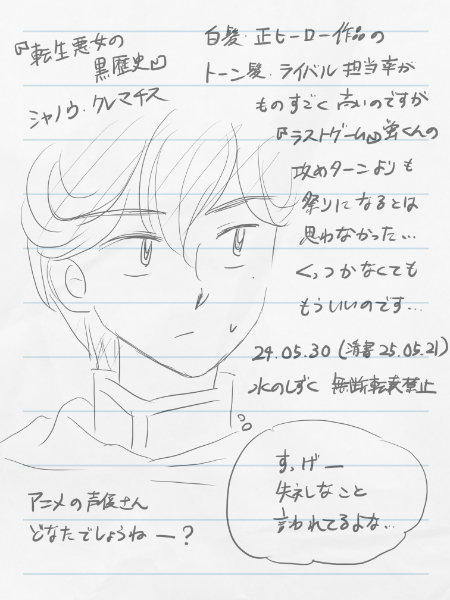 『転生悪女の
黒歴史』
シャノウ・クレマチス
白髪・正ヒーロー作品の
トーン髪・ライバル担当率が
ものすごく高いのですが
『ラストゲーム』蛍くんの
攻めターンよりも
祭りになるとは
思わなかった…
くっつかなくても
もういいのです…
24.05.30(清書25.05.21)
水のしずく 無断転載禁止
すっげー
失礼なこと
言われてるよな…
アニメの声優さん
どなたでしょうねー?